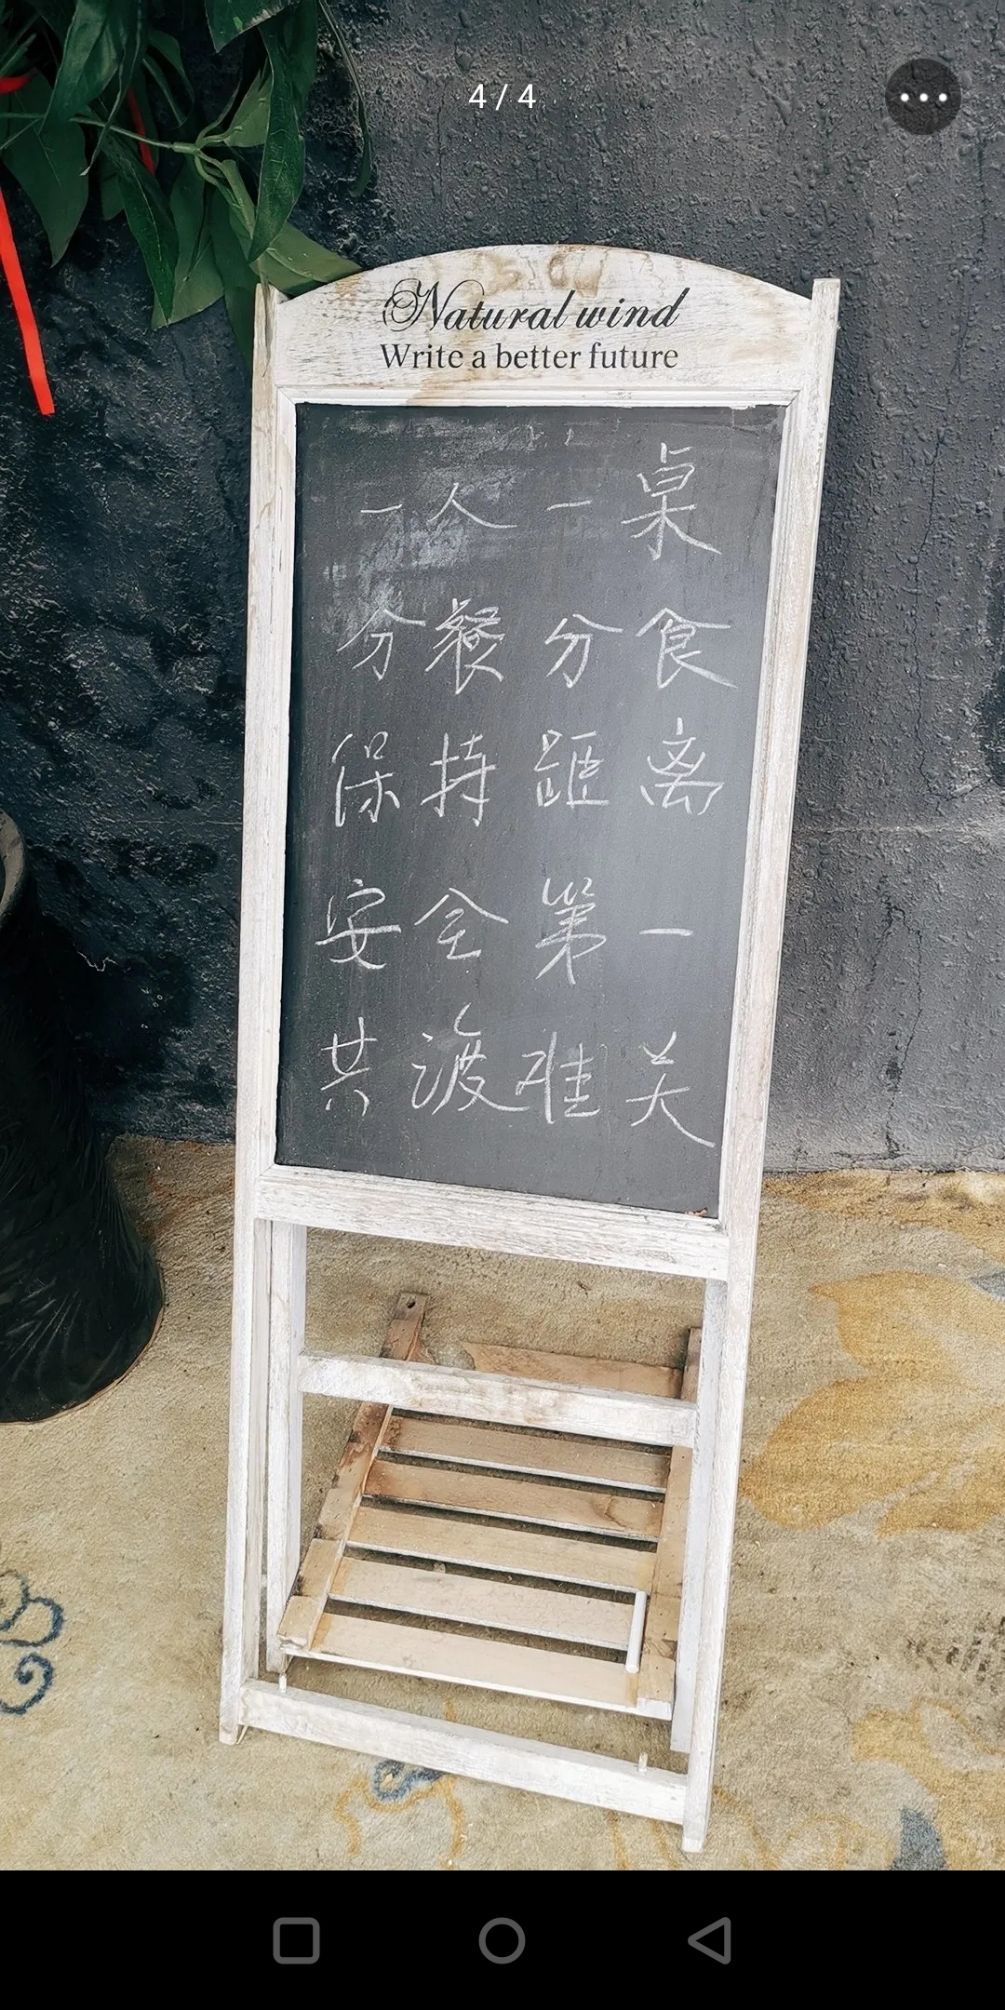 4 / 4
Natural wind
Write a better future
一人一桌
分餐分食
保持距离
安全第一
共渡难关